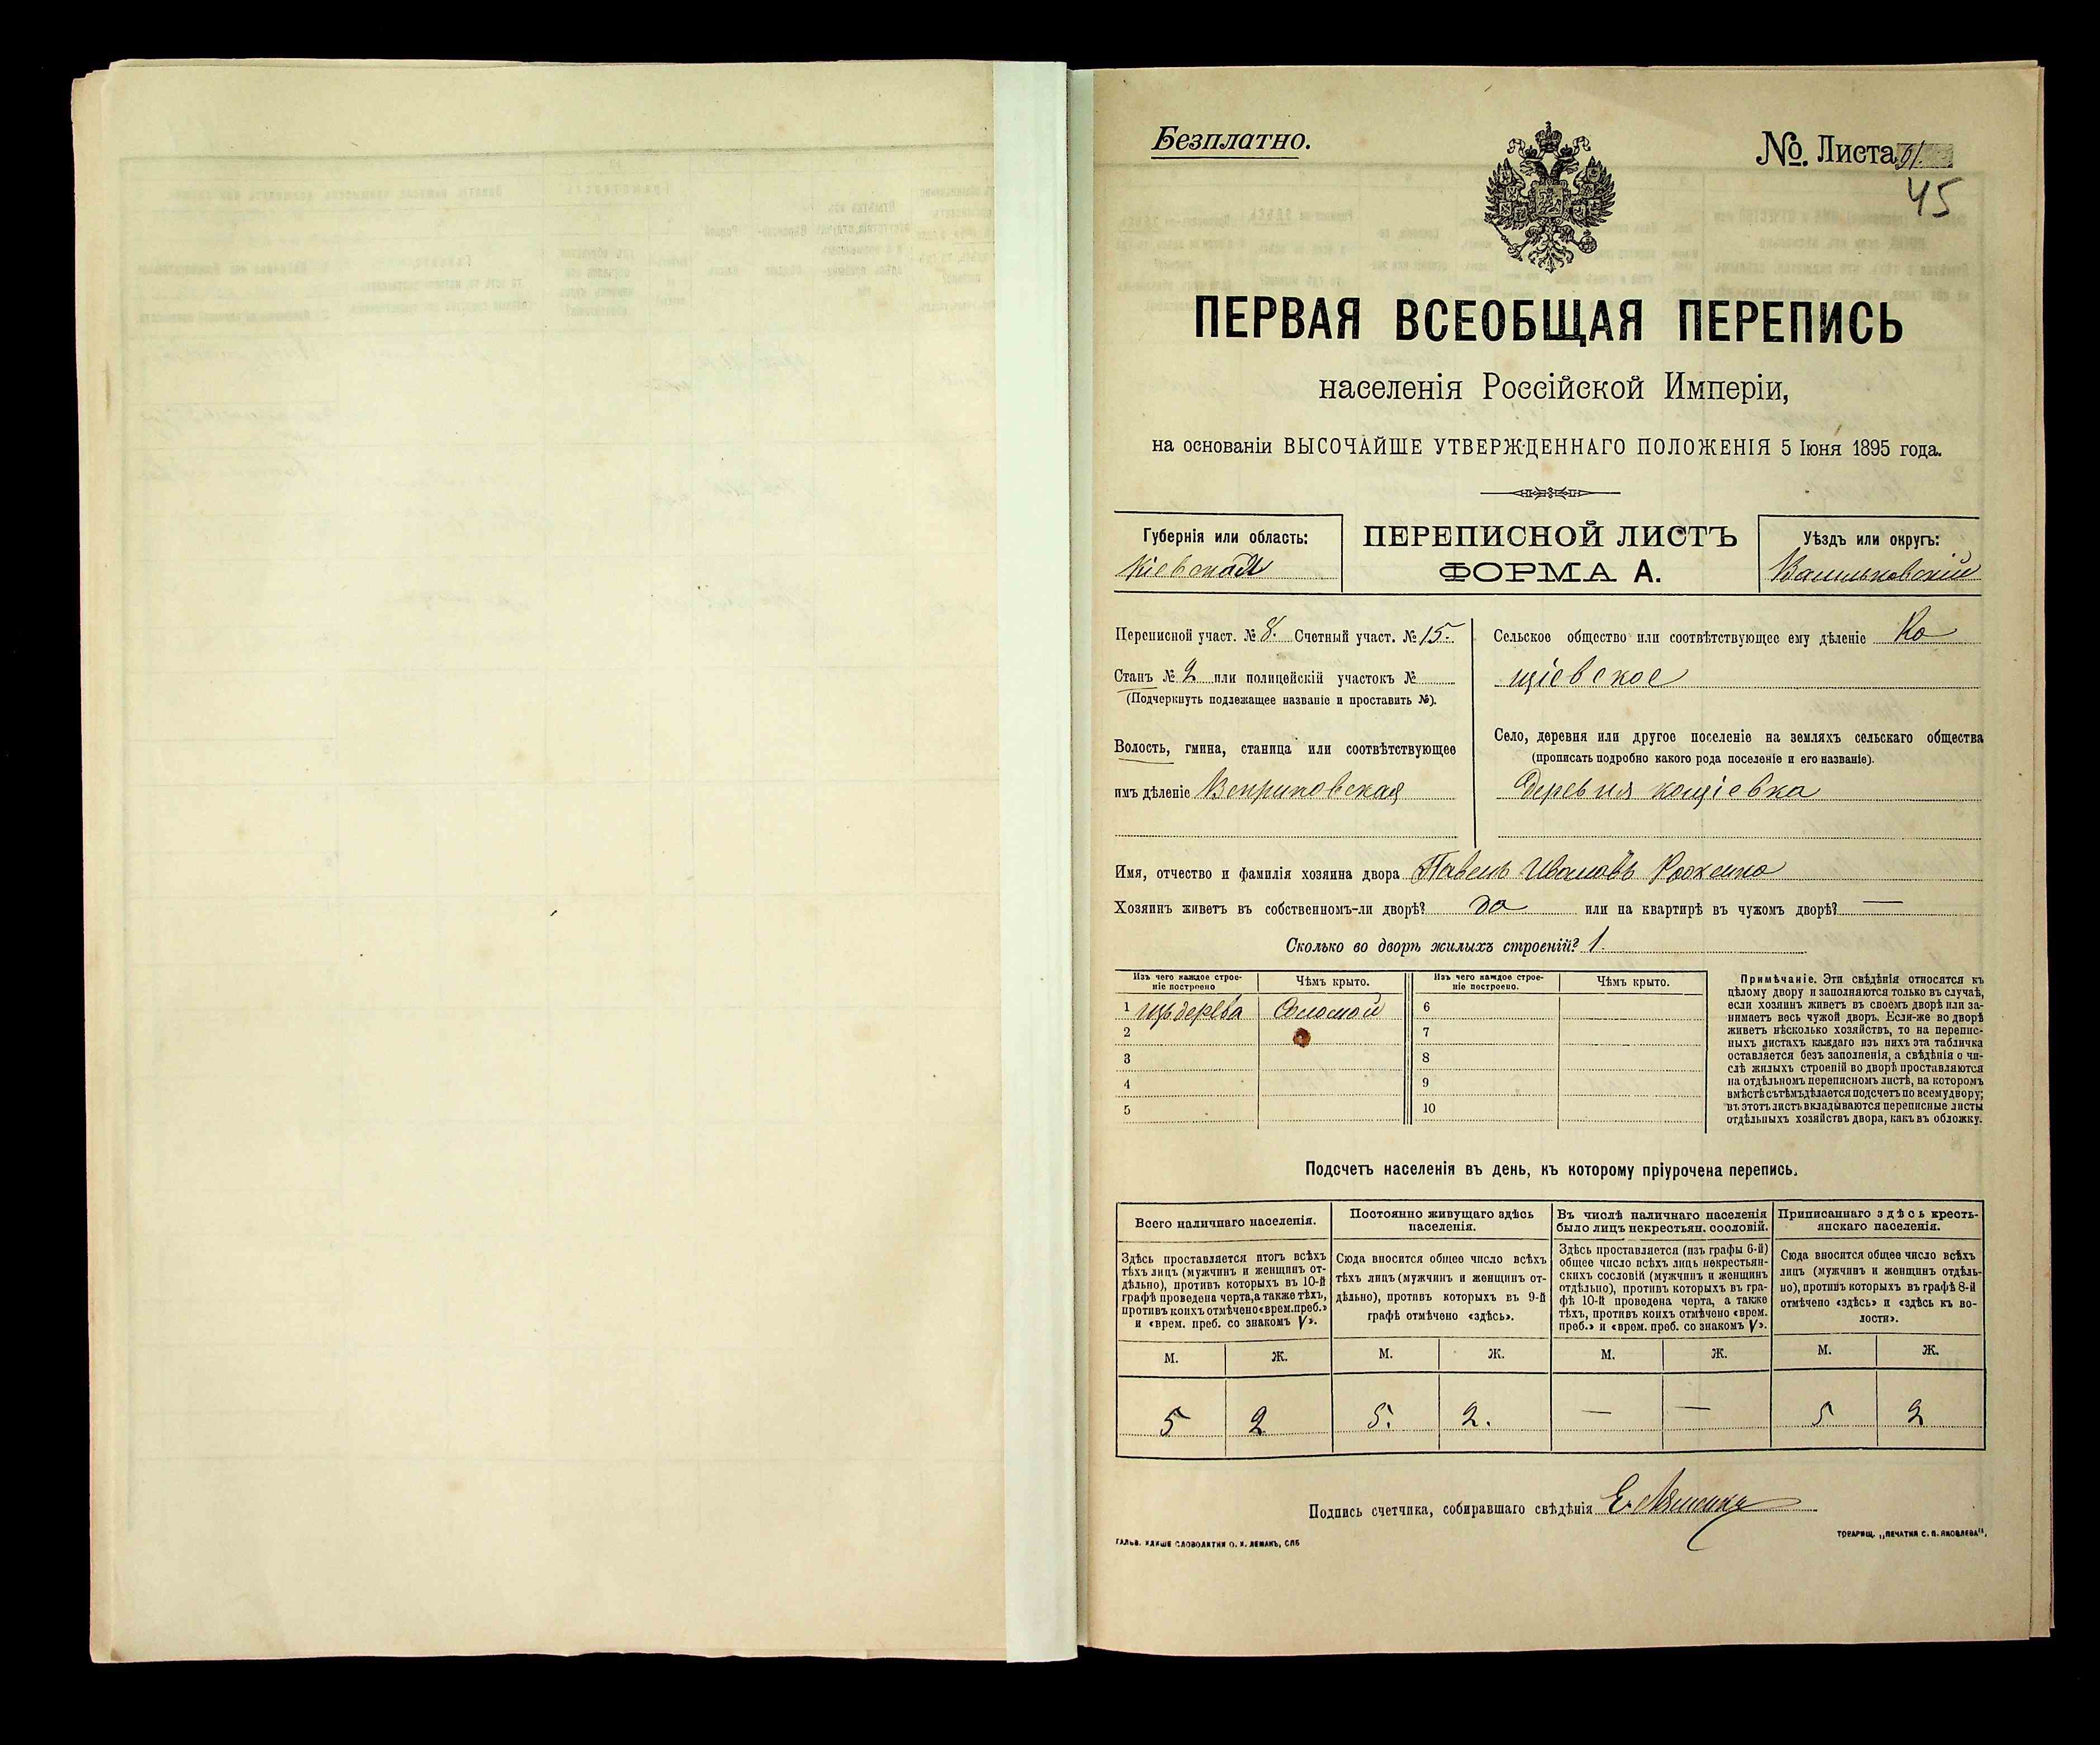 Безплатно.
№. Листа 91.
45
ПЕРВАЯ ВСЕОБЩАЯ ПЕРЕПИСЬ
населенія Россійской Имперіи,
на основаніи ВЫСОЧАЙШЕ УТВЕРЖДЕННАГО ПОЛОЖЕНІЯ 5 Іюня 1895 года.
Губернія или область:
Кіевская
ПЕРЕПИСНОЙ ЛИСТЪ
ФОРМА А.
Уѣздъ или округъ:
Васильковскій
Переписной участ. № 8. Счетный участ. № 15.
Станъ № 2 или полицейскій участокъ №
(Подчеркнуть подлежащее названіе и проставить №).
Волость, гмина, станица или соотвѣтствующее
имъ дѣленіе Веприковская
Сельское общество или соотвѣтствующее ему дѣленіе Ко
щіевское
Село, деревня или другое поселеніе на земляхъ сельскаго общества
(прописать подробно какого рода поселеніе и его названіе).
Деревня кощіевка
Имя, отчество и фамилія хозяина двора Павелъ Ивановъ
Хозяинъ живетъ въ собственномъ-ли дворѣ? да или на квартирѣ въ чужомъ дворѣ? —
Сколько во дворѣ жилыхъ строеній? 1.
Изъ чего каждое строе-
ніе построено
Чѣмъ крыто.
Изъ чего каждое строе-
ніе построено.
Чѣмъ крыто.
1 изъ дерева Соломой 6
2 7
3 8
4 9
5 10
Примѣчаніе. Эти свѣдѣнія относятся къ
цѣлому двору и заполняются только въ случаѣ,
если хозяинъ живетъ въ своемъ дворѣ или за-
нимаетъ весь чужой дворъ. Если-же во дворѣ
живетъ нѣсколько хозяйствъ, то на перепис-
ныхъ листахъ каждаго изъ нихъ эта табличка
оставляется безъ заполненія, а свѣдѣнія о чи-
слѣ жилыхъ строеній во дворѣ проставляются
на отдѣльномъ переписномъ листѣ, на которомъ
вмѣстѣ съ тѣмъ дѣлается подсчетъ по всему двору;
въ этотъ листъ вкладываются переписные листы
отдѣльныхъ хозяйствъ двора, какъ въ обложку.
Подсчетъ населенія въ день, къ которому пріурочена перепись.
Всего наличнаго населенія.
Здѣсь проставляется итогъ всѣхъ
тѣхъ лицъ (мужчинъ и женщинъ от-
дѣльно), противъ которыхъ въ 10-й
графѣ проведена черта, а также тѣхъ,
противъ коихъ отмѣчено «врем. преб.»
и «врем. преб. со знакомъ V».
Постоянно живущаго здѣсь
населенія.
Сюда вносится общее число всѣхъ
тѣхъ лицъ (мужчинъ и женщинъ от-
дѣльно), противъ которыхъ въ 9-й
графѣ отмѣчено «здѣсь».
Въ числѣ наличнаго населенія
было лицъ некрестьян. сословій.
Здѣсь проставляется (изъ графы 6-й)
общее число всѣхъ лицъ некрестьян-
скихъ сословій (мужчинъ и женщинъ
отдѣльно), противъ которыхъ въ гра-
фѣ 10-й проведена черта, а также
тѣхъ, противъ коихъ отмѣчено «врем.
преб.» и «врем. преб. со знакомъ V».
Приписаннаго здѣсь кресть-
янскаго населенія.
Сюда вносится общее число всѣхъ
лицъ (мужчинъ и женщинъ отдѣль-
но), противъ которыхъ въ графѣ 8-й
отмѣчено «здѣсь» и «здѣсь къ во-
лости».
М. Ж. М. Ж. М. Ж. М. Ж.
5 2 5. 2. — — 5 2
Подпись счетчика, собиравшаго свѣдѣнія
ГАЛЬВ. КЛИШЕ СЛОВОЛИТНИ О. И. ЛЕМАНЪ, СПБ
ТОВАРИЩ. „ПЕЧАТНЯ С. П. ЯКОВЛЕВА".